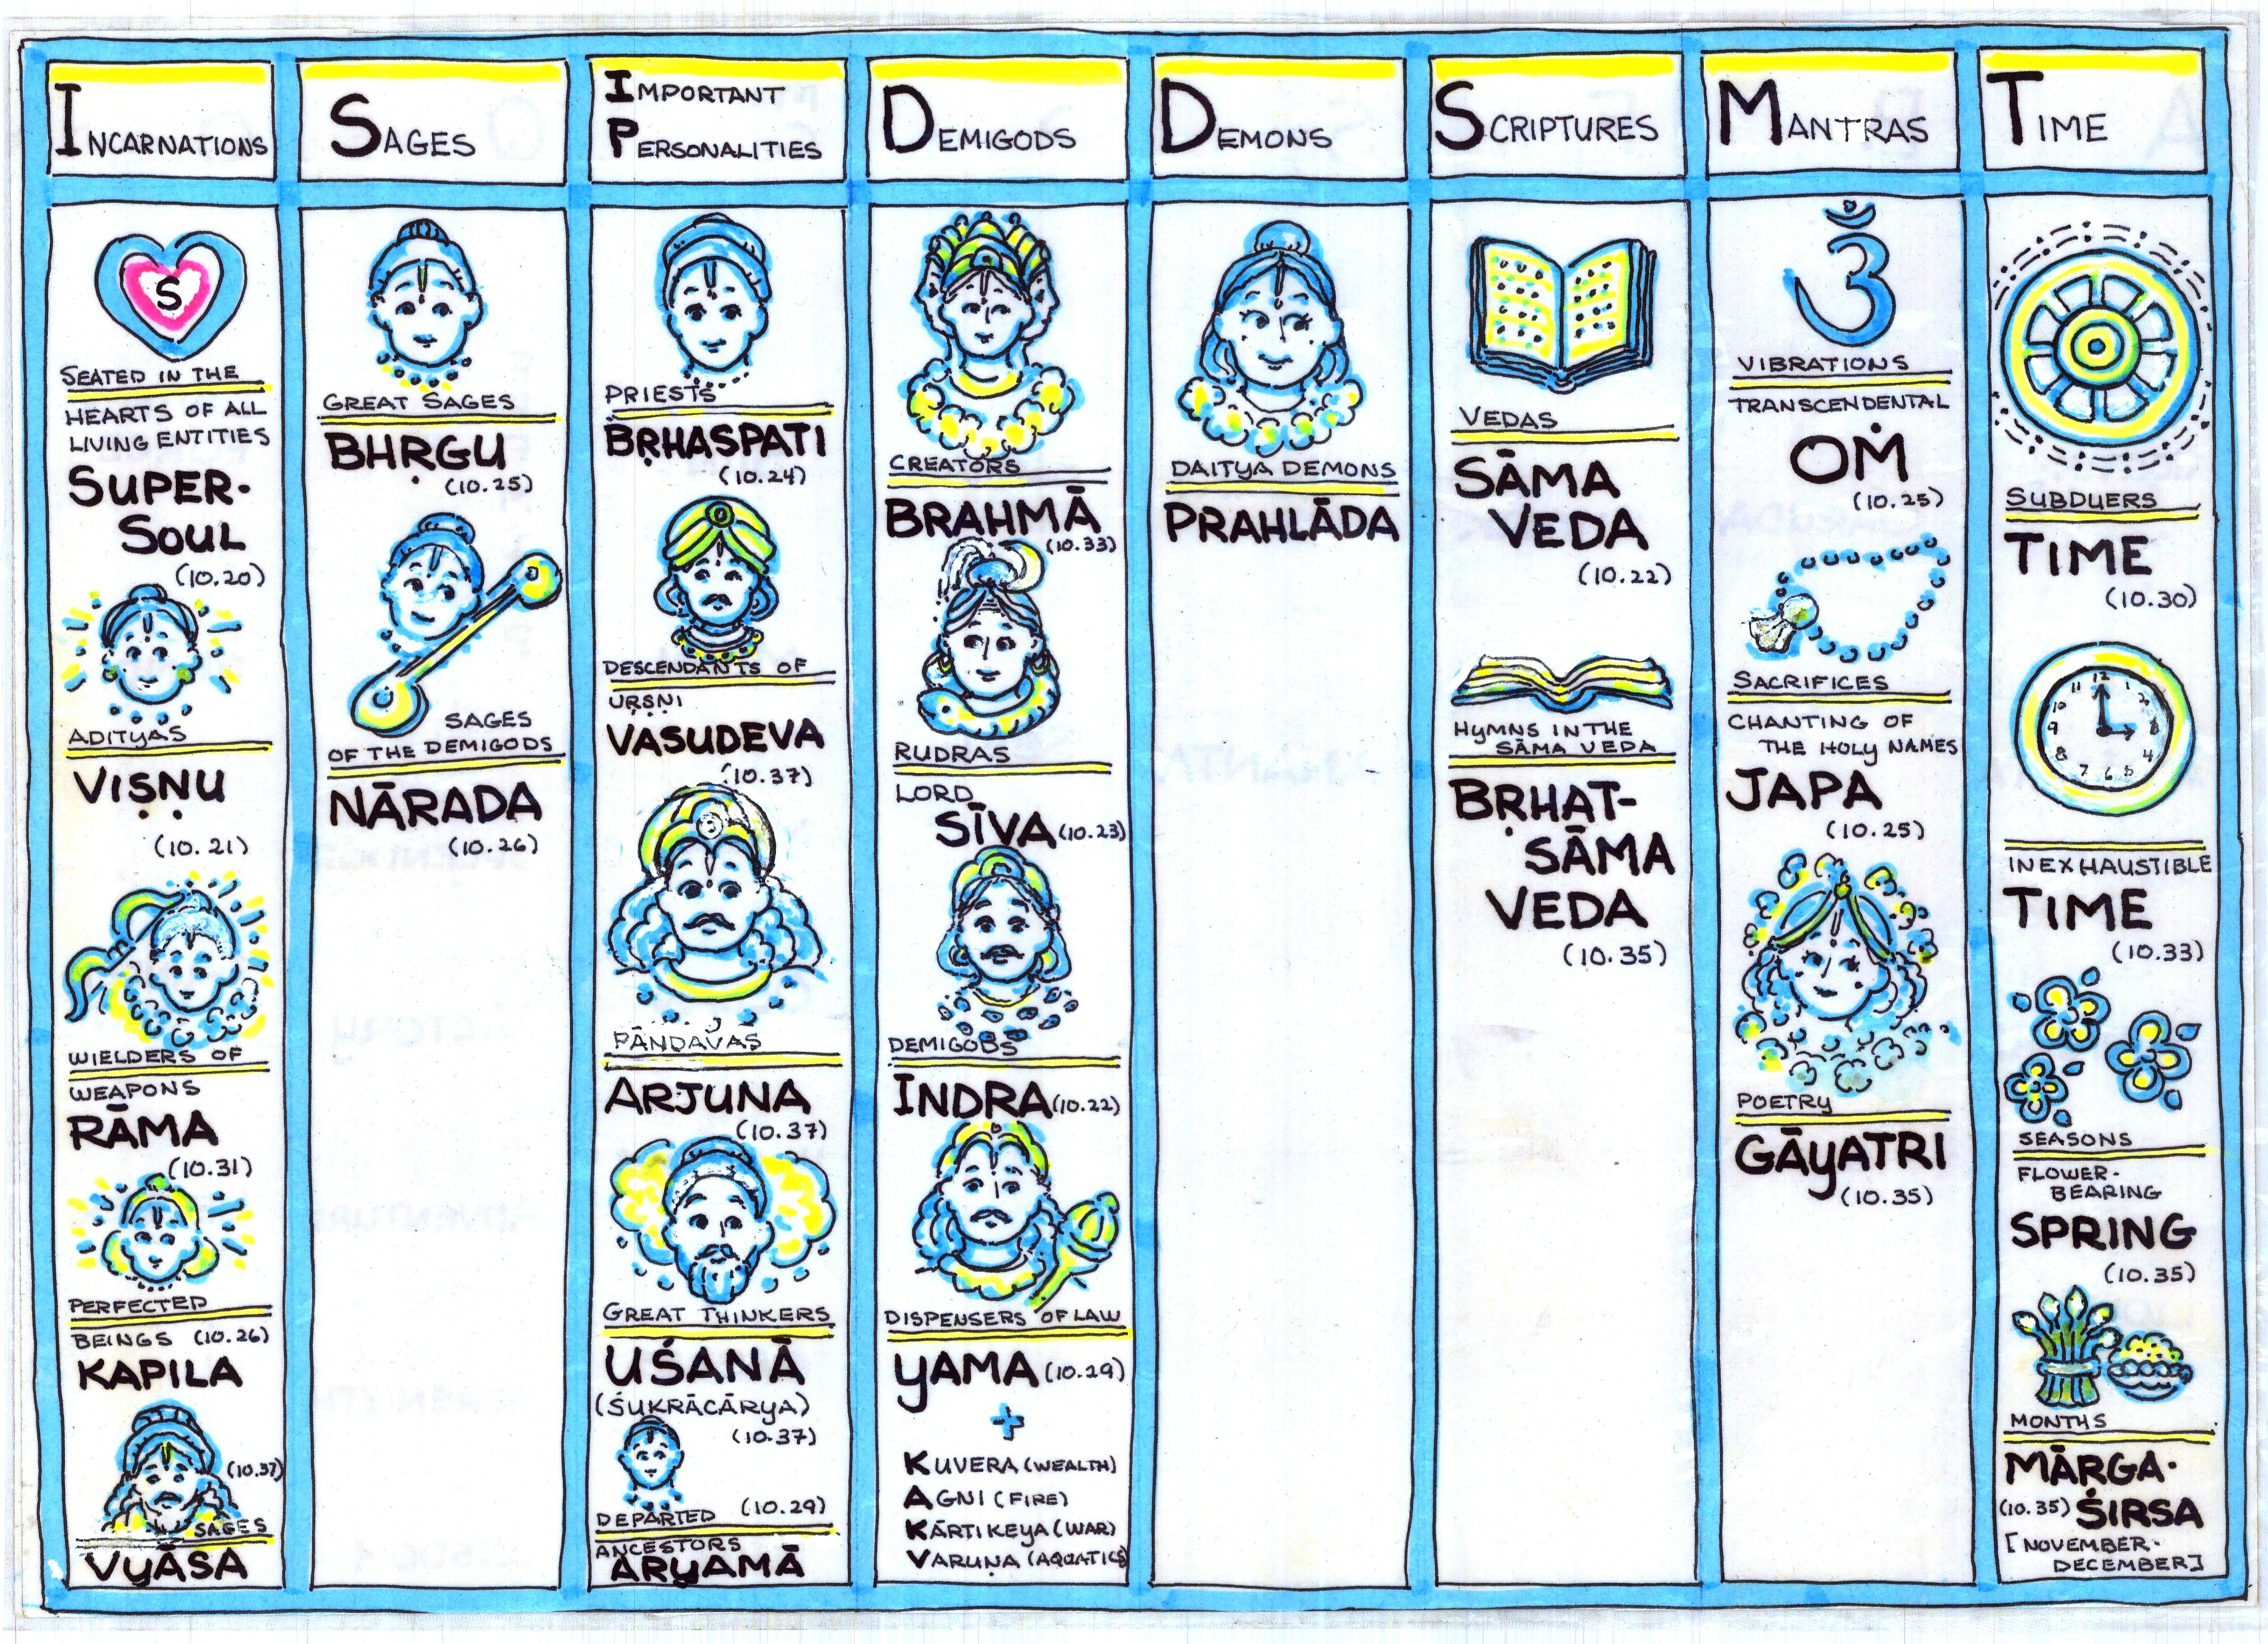 INCARNATIONS
SEATED IN THE
HEARTS OF ALL
LIVING ENTITIES
SUPER-
SOUL
(10.20)
ADITYAS
VIṢṆU
(10.21)
WIELDERS OF
WEAPONS
RĀMA
(10.31)
PERFECTED
BEINGS (10.26)
KAPILA
(10.37)
SAGES
VYĀSA
SAGES
GREAT SAGES
BHṚGU
(10.25)
SAGES
OF THE DEMIGODS
NĀRADA
(10.26)
IMPORTANT
PERSONALITIES
PRIESTS
BṚHASPATI
(10.24)
DESCENDANTS OF
URṢṆI
VASUDEVA
(10.37)
PĀNDAVAS
ARJUNA
(10.37)
GREAT THINKERS
UŚANĀ
(ŚUKRĀCĀRYA)
(10.37)
DEPARTED (10.29)
ANCESTORS
ARYAMĀ
DEMIGODS
CREATORS
BRAHMĀ
(10.33)
RUDRAS
LORD
SĪVA (10.23)
DEMIGODS
INDRA (10.22)
DISPENSERS OF LAW
YAMA (10.29)
+
KUVERA (WEALTH)
AGNI (FIRE)
KĀRTIKEYA (WAR)
VARUṆA (AQUATICS)
DEMONS
DAITYA DEMONS
PRAHLĀDA
SCRIPTURES
VEDAS
SĀMA
VEDA
(10.22)
HYMNS IN THE
SĀMA VEDA
BṚHAT-
SĀMA
VEDA
(10.35)
MANTRAS
ॐ
VIBRATIONS
TRANSCENDENTAL
OṀ
(10.25)
SACRIFICES
CHANTING OF
THE HOLY NAMES
JAPA
(10.25)
POETRY
GĀYATRI
(10.35)
TIME
SUBDUERS
TIME
(10.30)
INEXHAUSTIBLE
TIME
(10.33)
SEASONS
FLOWER-
BEARING
SPRING
(10.35)
MONTHS
MĀRGA-
(10.35) ŚIRSA
[NOVEMBER-
DECEMBER]